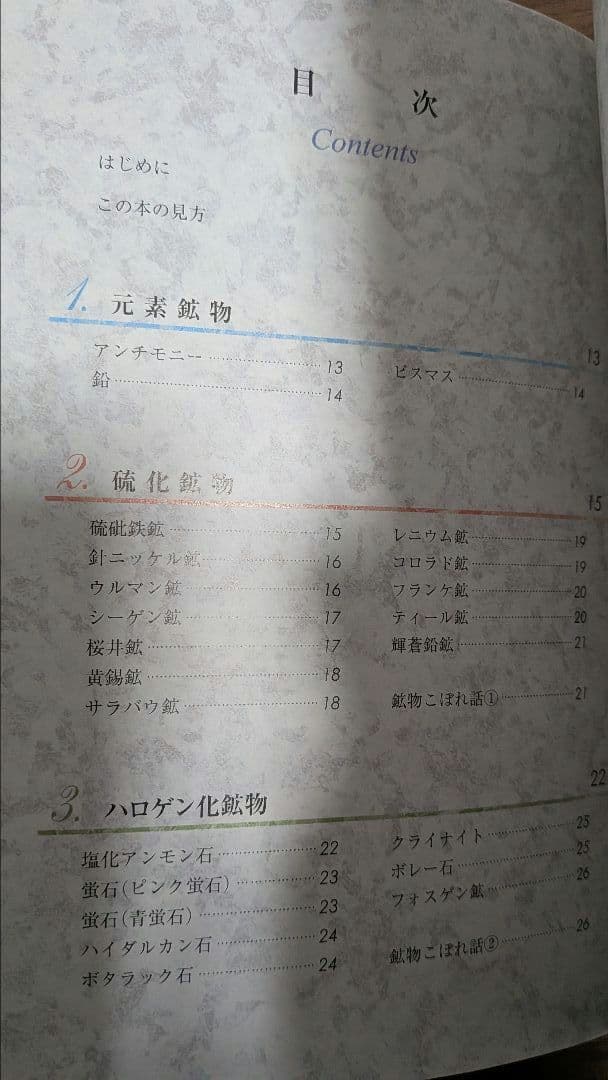 目次
Contents
はじめに
この本の見方
1. 元素鉱物 13
アンチモニー 13
鉛 14
ビスマス 14
2. 硫化鉱物 15
硫砒鉄鉱 15
針ニッケル鉱 16
ウルマン鉱 16
シーゲン鉱 17
桜井鉱 17
黄錫鉱 18
サラバウ鉱 18
レニウム鉱 19
コロラド鉱 19
フランケ鉱 20
ティール鉱 20
輝蒼鉛鉱 21
鉱物こぼれ話① 21
3. ハロゲン化鉱物 22
塩化アンモン石 22
蛍石(ピンク蛍石) 23
蛍石(青蛍石) 23
ハイダルカン石 24
ボタラック石 24
クライナイト 25
ボレー石 25
フォスゲン鉱 26
鉱物こぼれ話② 26